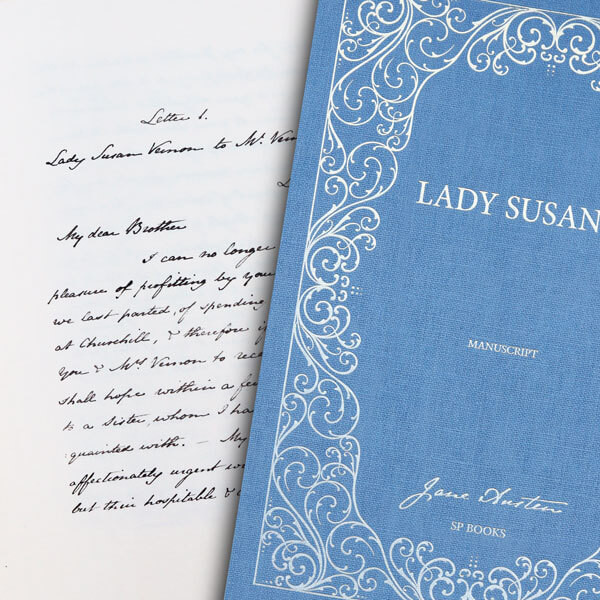 Letter 1.
Lady Susan Vernon to Mr Vern
My dear Brother
I can no longer
pleasure of profitting by you
we last parted, of spending
at Churchill, & therefore if
you & Mrs Vernon to rece
shall hope within a fe
to a Sister, whom I ha
quainted with. — My
affectionately urgent w
but their hospitable &
LADY SUSAN
MANUSCRIPT
Jane Austen
SP BOOKS